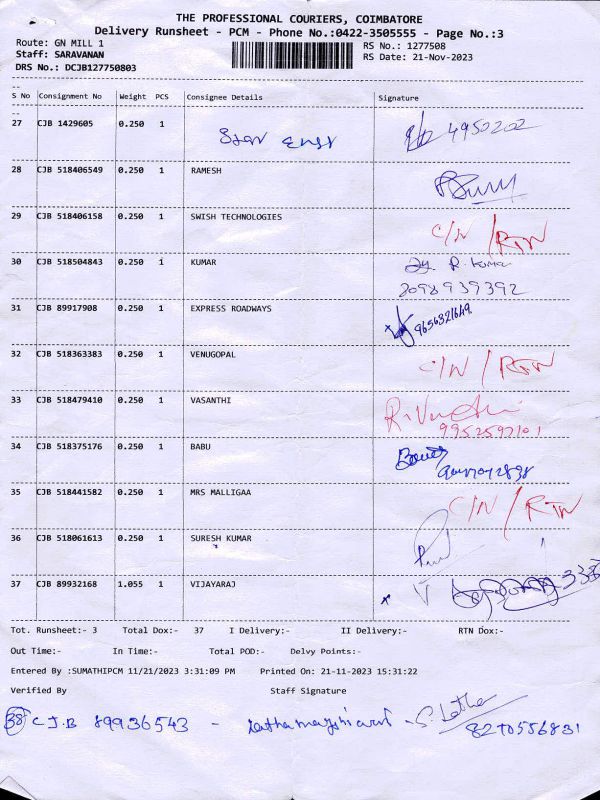 THE PROFESSIONAL COURIERS, COIMBATORE
Delivery Runsheet - PCM - Phone No.:0422-3505555 - Page No.:3
Route: GN MILL 1 RS No.: 1277508
Staff: SARAVANAN RS Date: 21-Nov-2023
DRS No.: DCJB127750803
S No Consignment No Weight PCS Consignee Details Signature
27 CJB 1429605 0.250 1 4950202
28 CJB 518406549 0.250 1 RAMESH
29 CJB 518406158 0.250 1 SWISH TECHNOLOGIES C/N / RTN
30 CJB 518504843 0.250 1 KUMAR R. Kumar
2098939392
31 CJB 89917908 0.250 1 EXPRESS ROADWAYS 9656321649
32 CJB 518363383 0.250 1 VENUGOPAL C/N / RTN
33 CJB 518479410 0.250 1 VASANTHI
9952597101
34 CJB 518375176 0.250 1 BABU
35 CJB 518441582 0.250 1 MRS MALLIGAA C/N / RTN
36 CJB 518061613 0.250 1 SURESH KUMAR
37 CJB 89932168 1.055 1 VIJAYARAJ
Tot. Runsheet:- 3 Total Dox:- 37 I Delivery:- II Delivery:- RTN Dox:-
Out Time:- In Time:- Total POD:- Delvy Points:-
Entered By :SUMATHIPCM 11/21/2023 3:31:09 PM Printed On: 21-11-2023 15:31:22
Verified By Staff Signature
38 CJB 89936543 - - S. Latha
8270556831